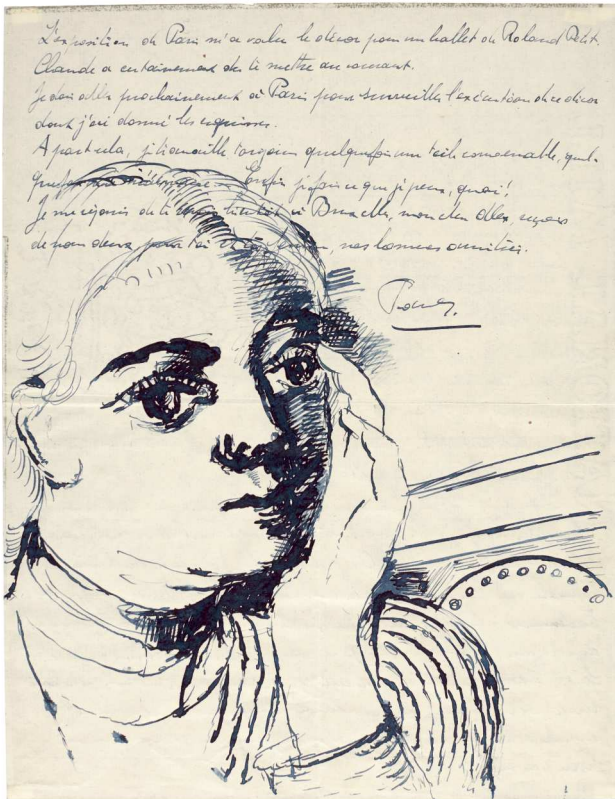 L'exposition de Paris m'a valu le décor pour un ballet de Roland Petit.
Claude a certainement dû te mettre au courant.
Je dois aller prochainement à Paris pour surveiller l'exécution de ce décor
dont j'ai donné les esquisses.
A part cela, je travaille toujours quelquefois une toile convenable, quel-
quefois Enfin je fais ce que je peux, quoi!
Je me réjouis de te bientôt à Bruxelles, mon cher Alex, reçois
de nous deux, pour toi et nos bonnes amitiés.
Paul.